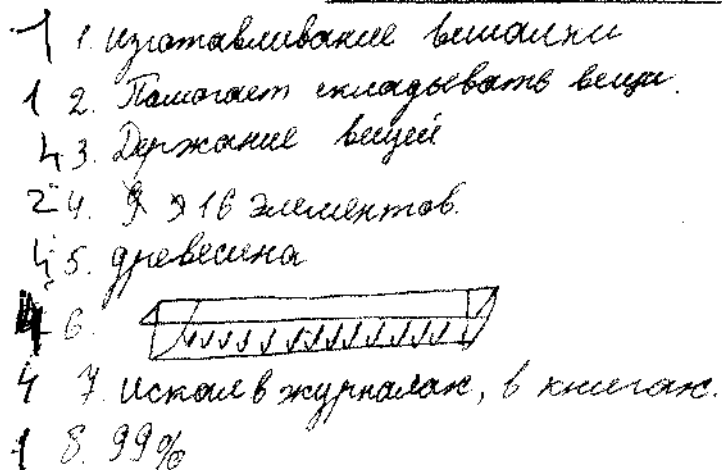 1 1. Изготавливание вешалки
1 2. Помогает складывать вещи.
4 3. Держание вещей
2 4. 16 элементов.
4 5. древесина
4 6.
4 7. Искал в журналах, в книгах.
1 8. 99%